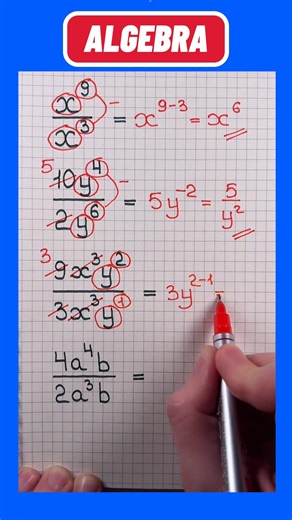 ALGEBRA
x⁹/x³ = x⁹⁻³ = x⁶
5 10y⁴/2y⁶ = 5y⁻² = 5/y²
3 9x³y²/3x³y¹ = 3y²⁻¹ =
4a⁴b/2a³b =